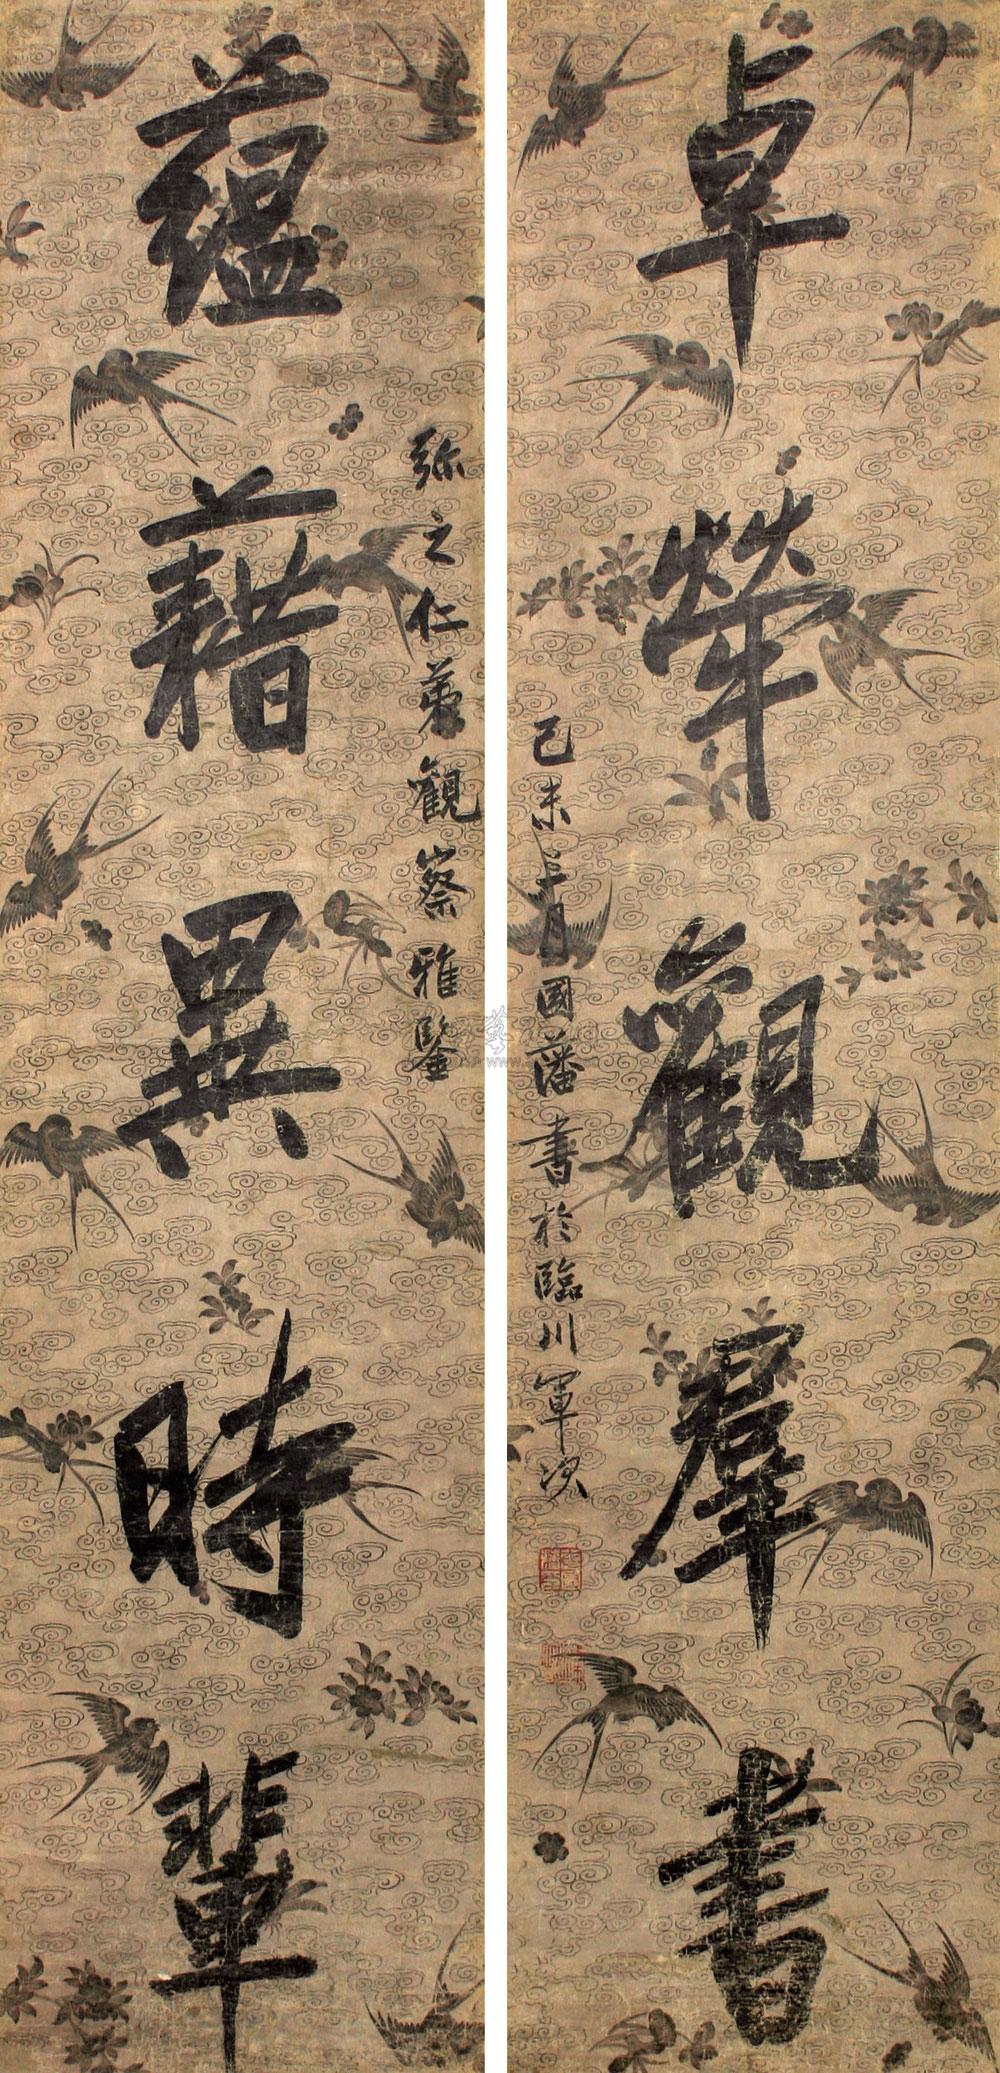 卓犖觀羣書
己未二月國藩書於臨川軍次
弥之仁弟觀察雅鑒
蘊藉異時輩